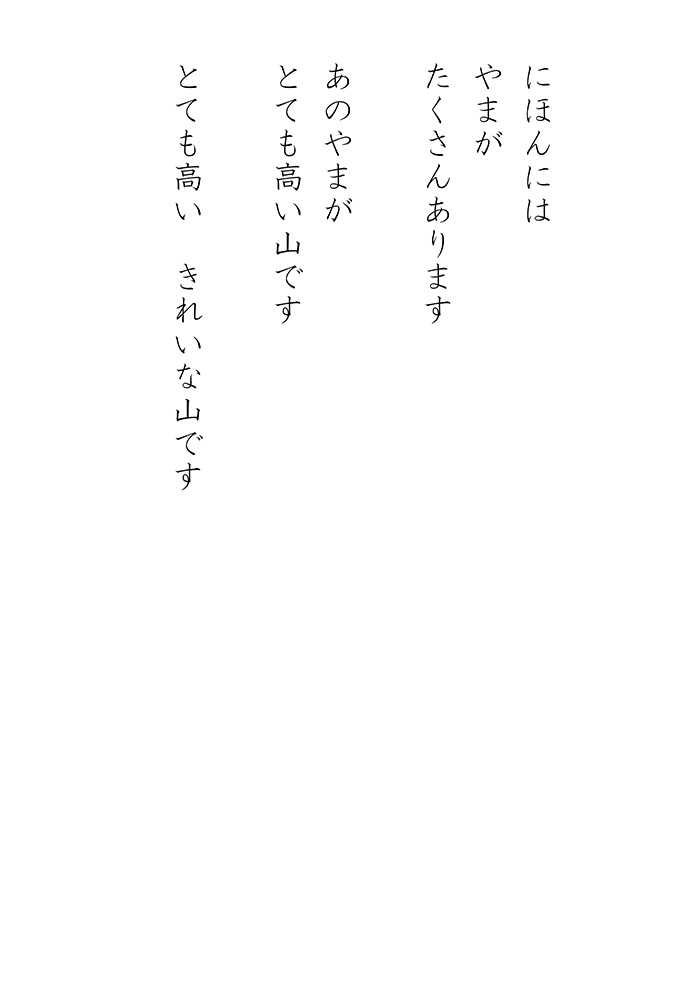 にほんには
やまが
たくさんあります
あのやまが
とても高い山です
とても高い　きれいな山です